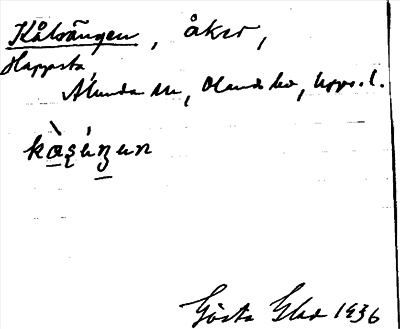 Kålsängen, åker,
Happsta
Alunda sn, Olands hd, Upps. l.
Gösta Glad 1936